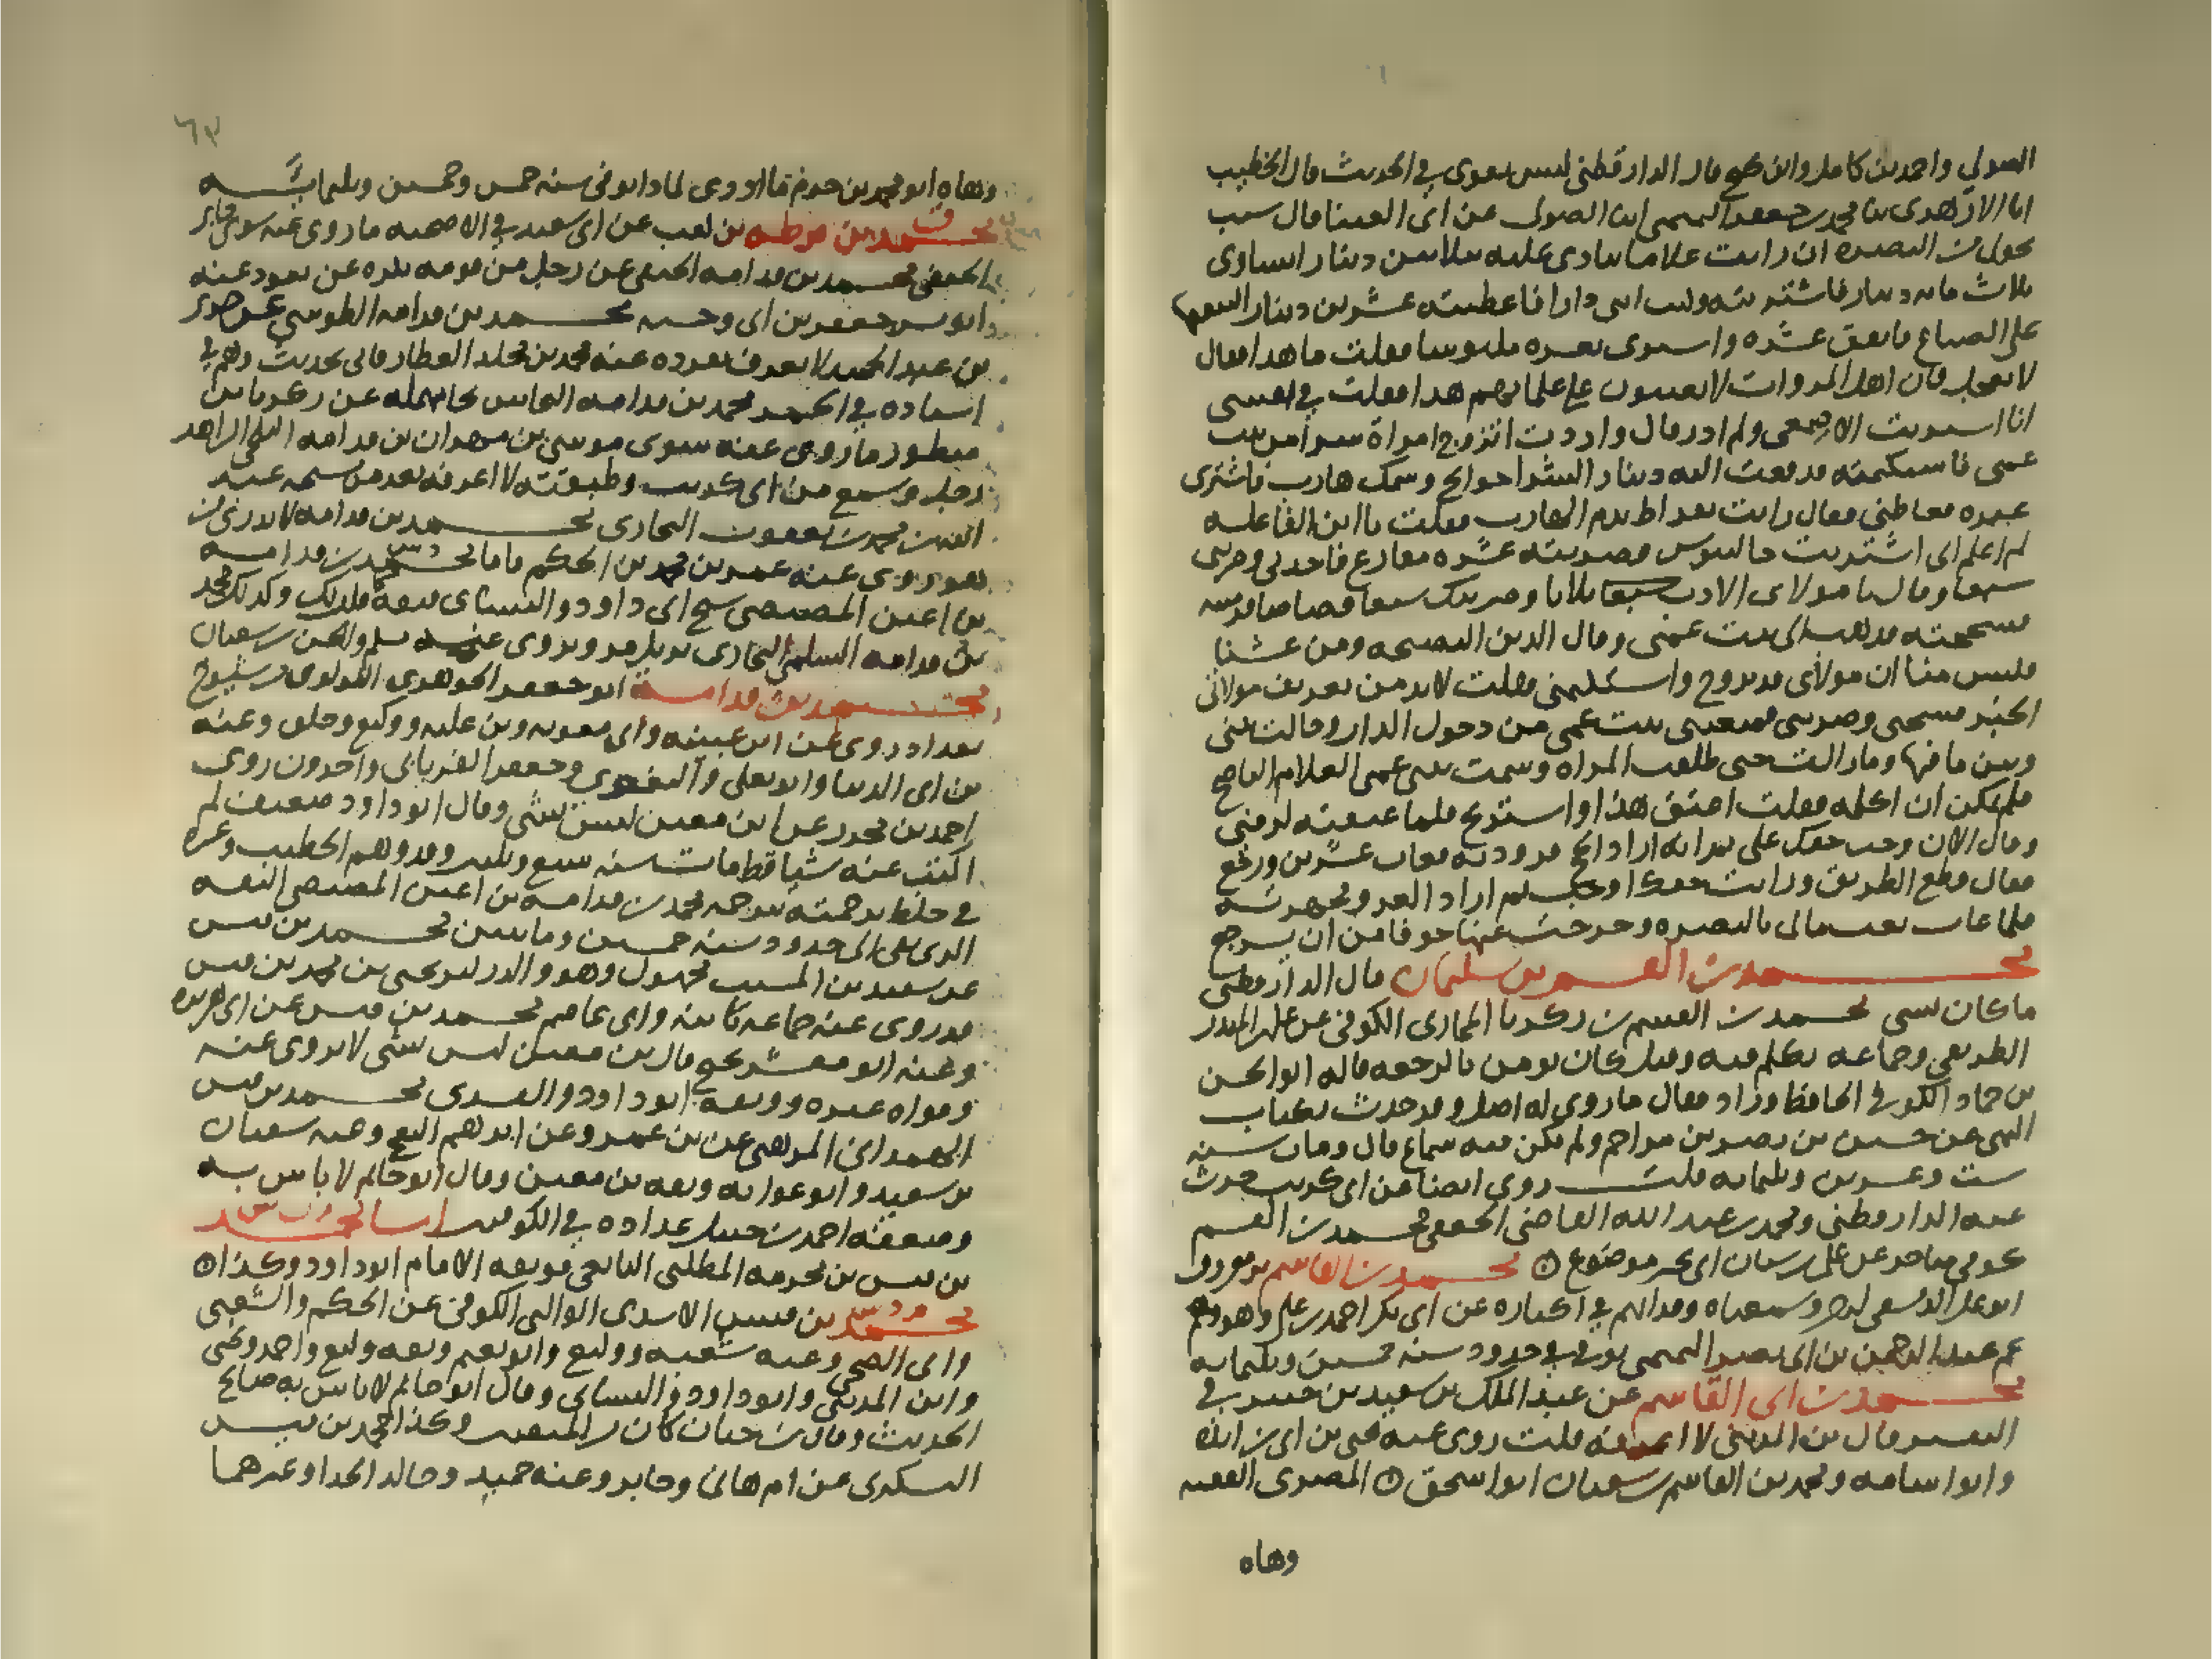 الصولي واحمد بن كامل وابن نجيح قال الدارقطني ليس بقوي في الحديث قال الخطيب
انا الازهري نا محمد بن جعفر التميمي انا الصولي عن ابي العينا قال سبب
تحولي من البصرة اني رايت غلاما ينادى عليه بثلاثين دينار ايساوي
ثلاث مائة دينار فاشتريته وكنت ابني دارا فاعطيته عشرين دينار الينفقها
على الصناع فانفق عشرة واشترى بعشرة ملبوسا فقلت ما هذا فقال
لا تعجل فان اهل المروات لا يعيبون على غلمانهم هذا فقلت في نفسي
انا اشتريت الاصمعي ولم ادر قال واردت اتزوج امراة سرا من بنت
عمي فاستكتمته فدفعت اليه دينار الشرا حوايج وسمك هازبى فاشترى
غيره فغاظني فقال رايت بقراط يذم الهازبى فقلت يا ابن الفاعلة
لم اعلم اني اشتريت جالينوس فضربته عشرة مقارع فاخذني وضربني
سبعا وقال يا مولاي الادب ثلاثا وضربتك سبعا قصاصا فرميته
فشججته فذهب الى بنت عمي وقال الدين النصيحة ومن غشنا
فليس منا ان مولاي قد تزوج واستكتمني فقلت لا بد من تعريف مولاتي
الخبر فشجني وضربني فمنعتني بنت عمي من دخول الدار وحالت بيني
وبين ما فيها وما زالت حتى طلقت المراة وسمت بنت عمي الغلام الناصح
فلم يمكن ان اكلمه فقلت اعتق هذا واستريح فلما عتقته لزمني
وقال الان وجب حقك علي ثم انه اراد الحج فزودته فغاب عشرين ورجع
فقال قطع الطريق ورايت حقك اوجب ثم اراد الغزو فجهزته
فلما غاب بعت مالي بالبصرة وخرجت عنها خوفا من ان يرجع
محمد بن القسم بن سليمان قال الدارقطني
ما كان بشي محمد بن القسم بن زكريا المحاربي الكوفي عن علي بن المنذر
الطريقي وجماعة تكلم فيه وقيل كان يومن بالرجعة قاله ابو الحسن
بن حماد الكوفي الحافظ وزاد فقال ما روي له اصل وقد حدث بكتاب
النهي عن حسين بن نصر بن مزاحم ولم يكن فيه سماع قال ومات سنة
ست وعشرين وثلثماية قلت روى ايضا عن ابي كريب حدث
عنه الدارقطني ومحمد بن عبد الله القاضي الجعفي محمد بن القسم
كوفي متاخر عن علي بن سفيان اتى بخبر موضوع محمد بن القاسم بن معروف
ابو علي الدمشقي اتهم في اكثاره عن ابي بكر احمد بن علي وهو
عم عبد الرحمن بن ابي نصر التميمي توفي في حدود سنة خمسين وثلثماية
محمد بن ابي القاسم عن عبد الملك بن سعيد بن جبير في
التفسير قال بن المديني لا اعرفه قلت روى عنه يحيى بن ابي زائدة
وابو اسامة ومحمد بن القاسم بن شعبان ابو اسحق المصري الفقيه
وهاه
٦٣
وهاه ابو محمد بن حزم ما ادري لماذا توفي سنة خمس وخمسين وثلثماية
ق محمد بن قرظة بن كعب عن ابي سعيد في الاضحية ما روى عنه سوى جابر
الجعفي محمد بن قدامة الحنفي عن رجل من قومه نكرة عن تفرد عنه
ابو بشر جعفر بن ابي وحشية محمد بن قدامة الطوسي عن جرير
بن عبد الحميد لا يعرف تفرد عنه محمد بن مخلد العطار فاتى بحديث وهم في
اسناده في محمد بن قدامة النحاس عن زكريا بن
منظور ما روى عنه سوى موسى بن مهران بن قدامة البلخي الزاهد
رحل وسمع من ابي كريب وطبقته لا اعرفه بعد من عبد
الله بن محمد بن يعقوب البخاري محمد بن قدامة لا يدرى من
هو روى عنه عمر بن محمد بن الحكم فاما محمد بن قدامة
بن اعين المصيصي شيخ ابي داود والنسائي فثقة وكذلك محمد
بن قدامة السلمي البخاري نزيل مرو يروي عنه مسلم والحسن بن سفيان
محمد بن قدامة ابو جعفر الجوهري اللولوي من شيوخ
بغداد روى عن ابن عيينة وابي معوية وبن علية ووكيع وخلق وعنه
بن ابي الدنيا وابو يعلى والبغوي وجعفر الفريابي واخرون روى
احمد بن محرز عن ابن معين ليس بشي وقال ابو داود ضعيف لم
اكتب عنه شيا قط مات سنة سبع وثلثين وقد وهم الخطيب وغيره
في خلط ترجمته بترجمة محمد بن قدامة بن اعين المصيصي الثقة
الذي بقي الى حدود سنة خمسين ومايتين محمد بن قيس
عن سعيد بن المسيب مجهول وهو والد ابو زكير يحيى بن محمد بن قيس
قد روى عنه جماعة كابنه وابي عاصم محمد بن قيس عن ابي هريرة
وعنه ابو معشر نجيح قال بن معين ليس بشي لا يروى عنه
وقواه غيره ووثقه ابو داود والفسوي محمد بن قيس
الهمداني المرهبي عن بن عمر وعن ابراهيم النخعي وعنه سفيان
بن سعيد وابو عوانة وثقه بن معين وقال ابو حاتم لا باس به
وضعفه احمد بن حنبل عداده في الكوفيين اما محمد
بن قيس بن مخرمة المطلبي التابعي فوثقه الامام ابو داود وكذا
م د س محمد بن قيس الاسدي الوالبي الكوفي عن الحكم والشعبي
وابي الضحى وعنه شعبة ووكيع وابو نعيم وثقه وكيع واحمد ويحيى
وابن المديني وابو داود والنسائي وقال ابو حاتم لا باس به صالح
الحديث وقال بن حبان كان من المتقنين وكذا محمد بن قيس
اليشكري عن ام هاني وجابر وعنه حميد وخالد الحذا وغيرهما